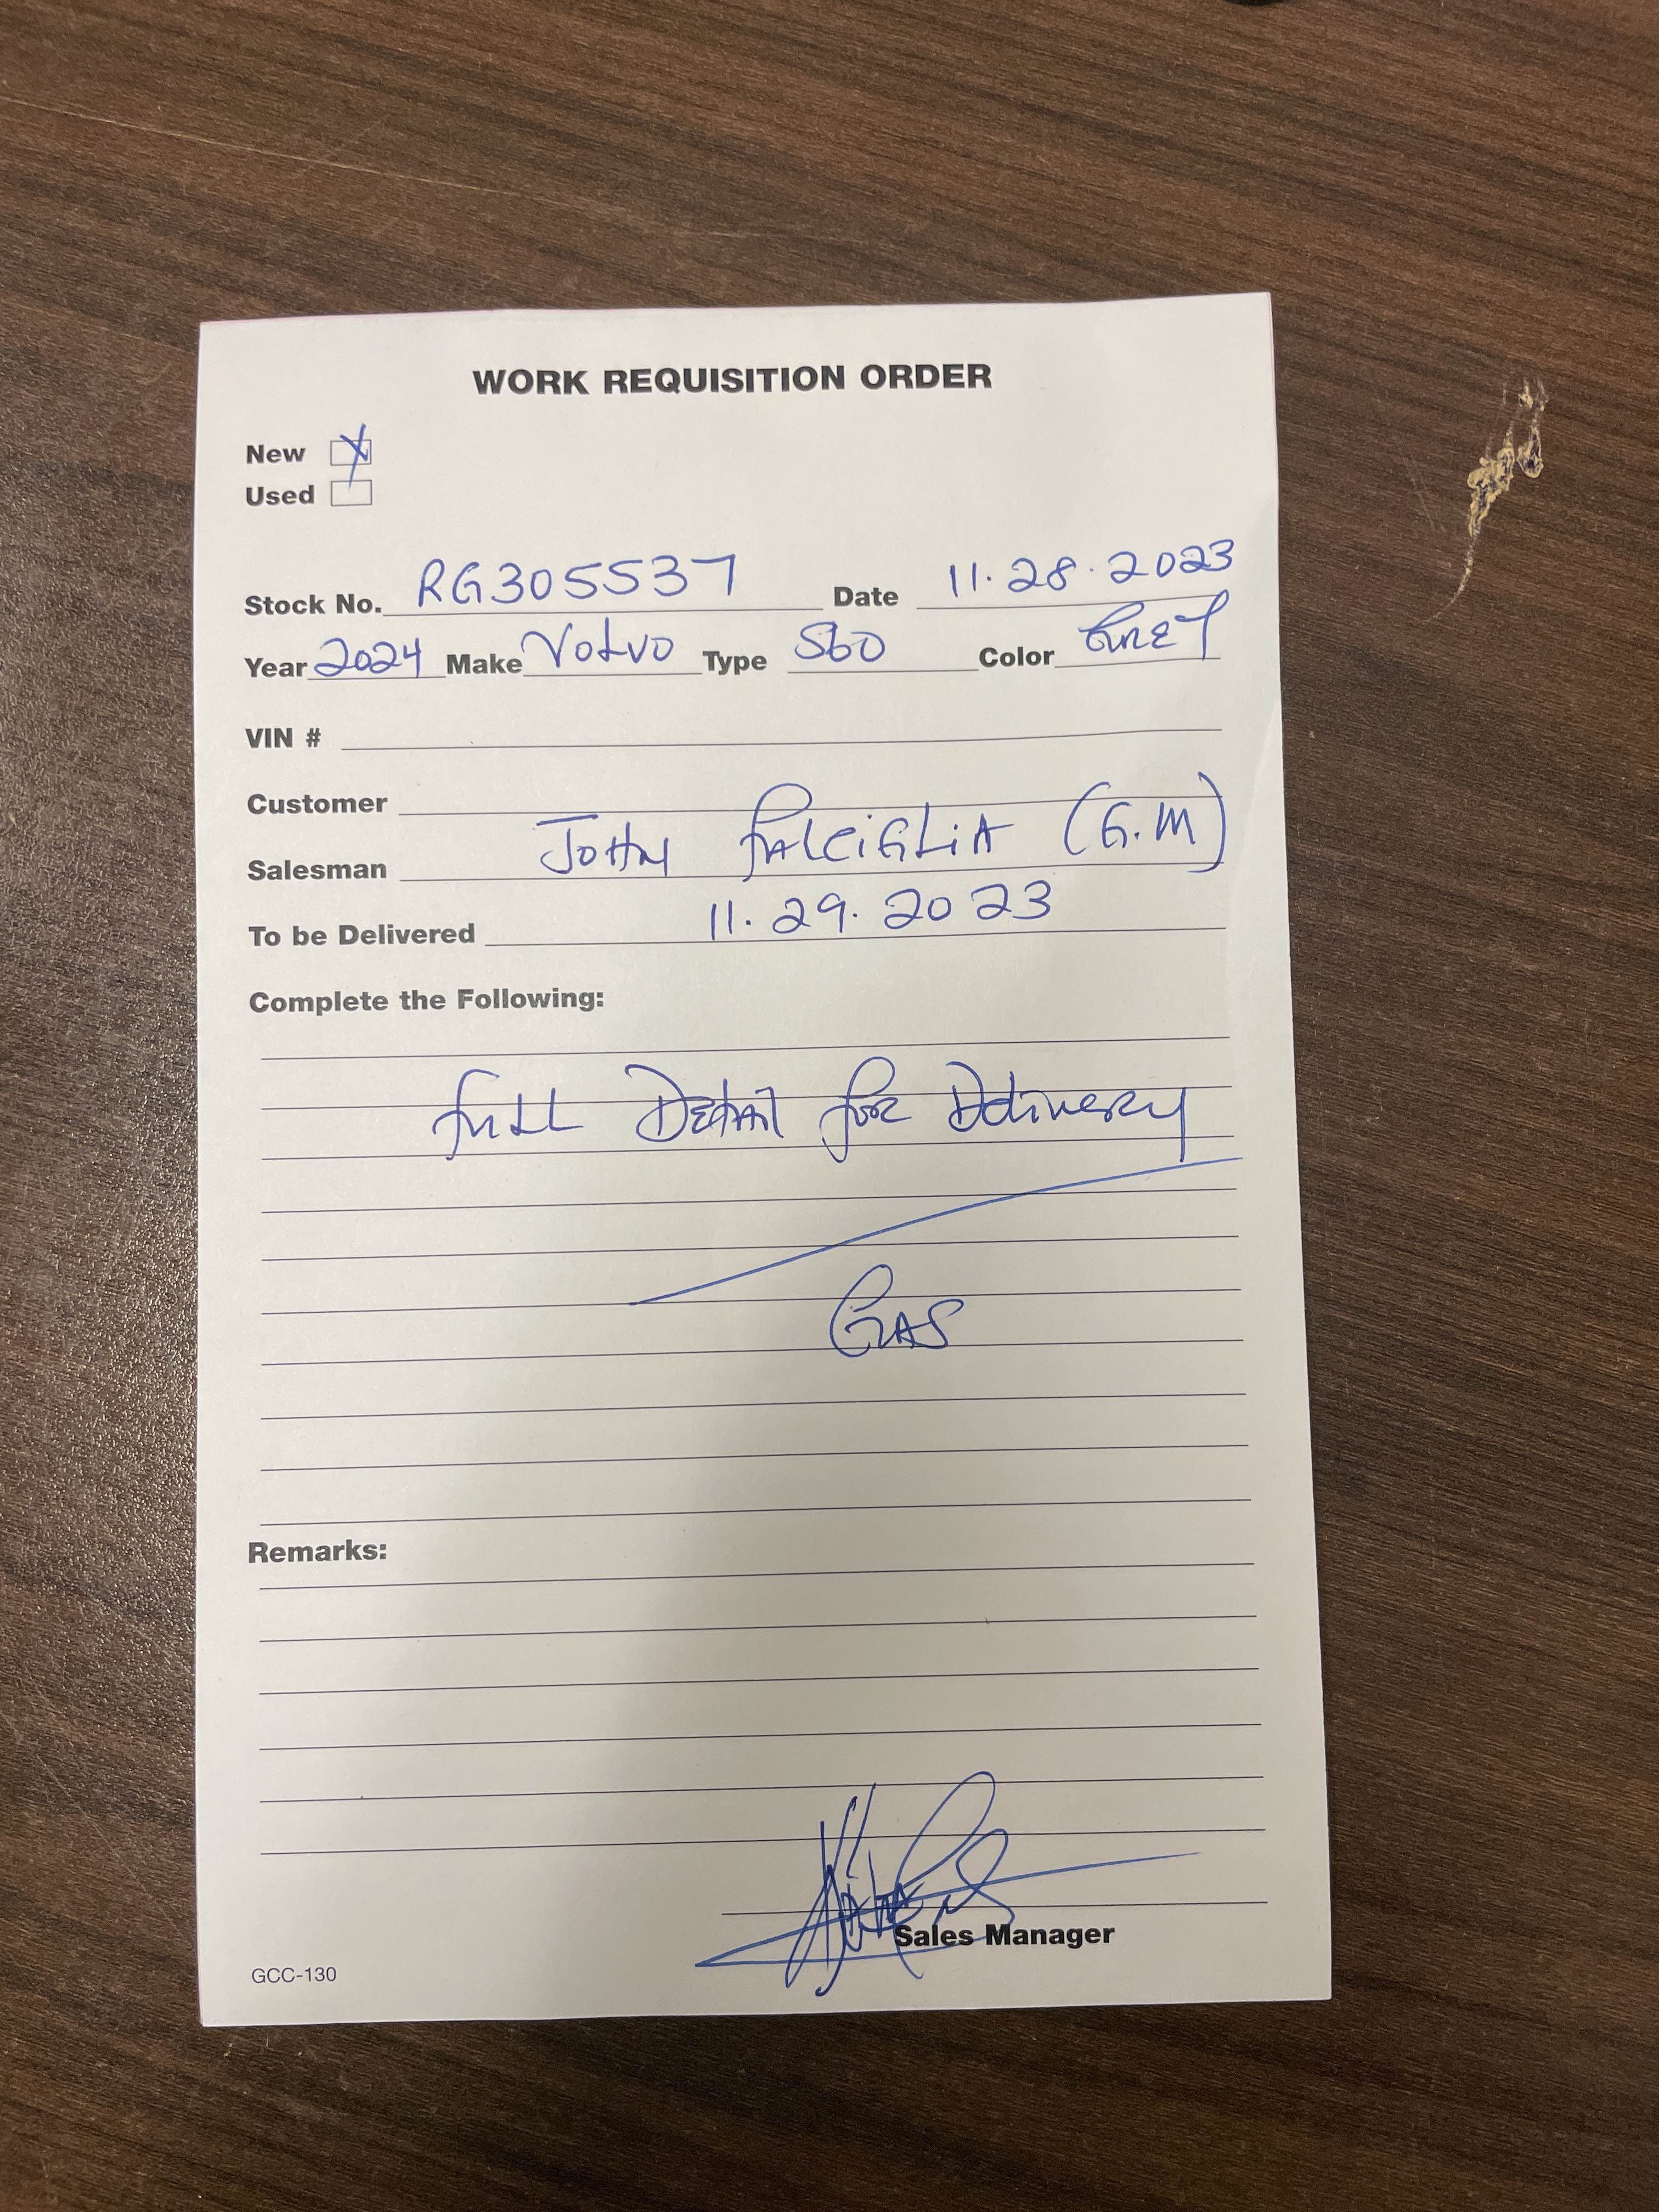 WORK REQUISITION ORDER
New X
Used
Stock No. RG305537 Date 11.28.2023
Year 2024 Make Volvo Type S60 Color Grey
VIN #
Customer
Salesman John Falciglia (G.M)
To be Delivered 11.29.2023
Complete the Following:
Full Detail for Delivery
Gas
Remarks:
Sales Manager
GCC-130